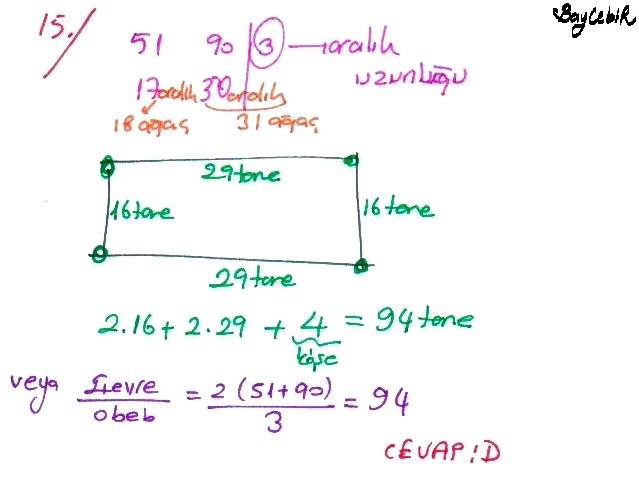 BayCebiR
15./
51 90 | 3 — aralık
uzunluğu
17 aralık 30 aralık
18 ağaç 31 ağaç
29 tane
16 tane 16 tane
29 tane
2.16 + 2.29 + 4 = 94 tane
köşe
veya Çevre = 2 (51+90) = 94
obeb 3
CEVAP: D